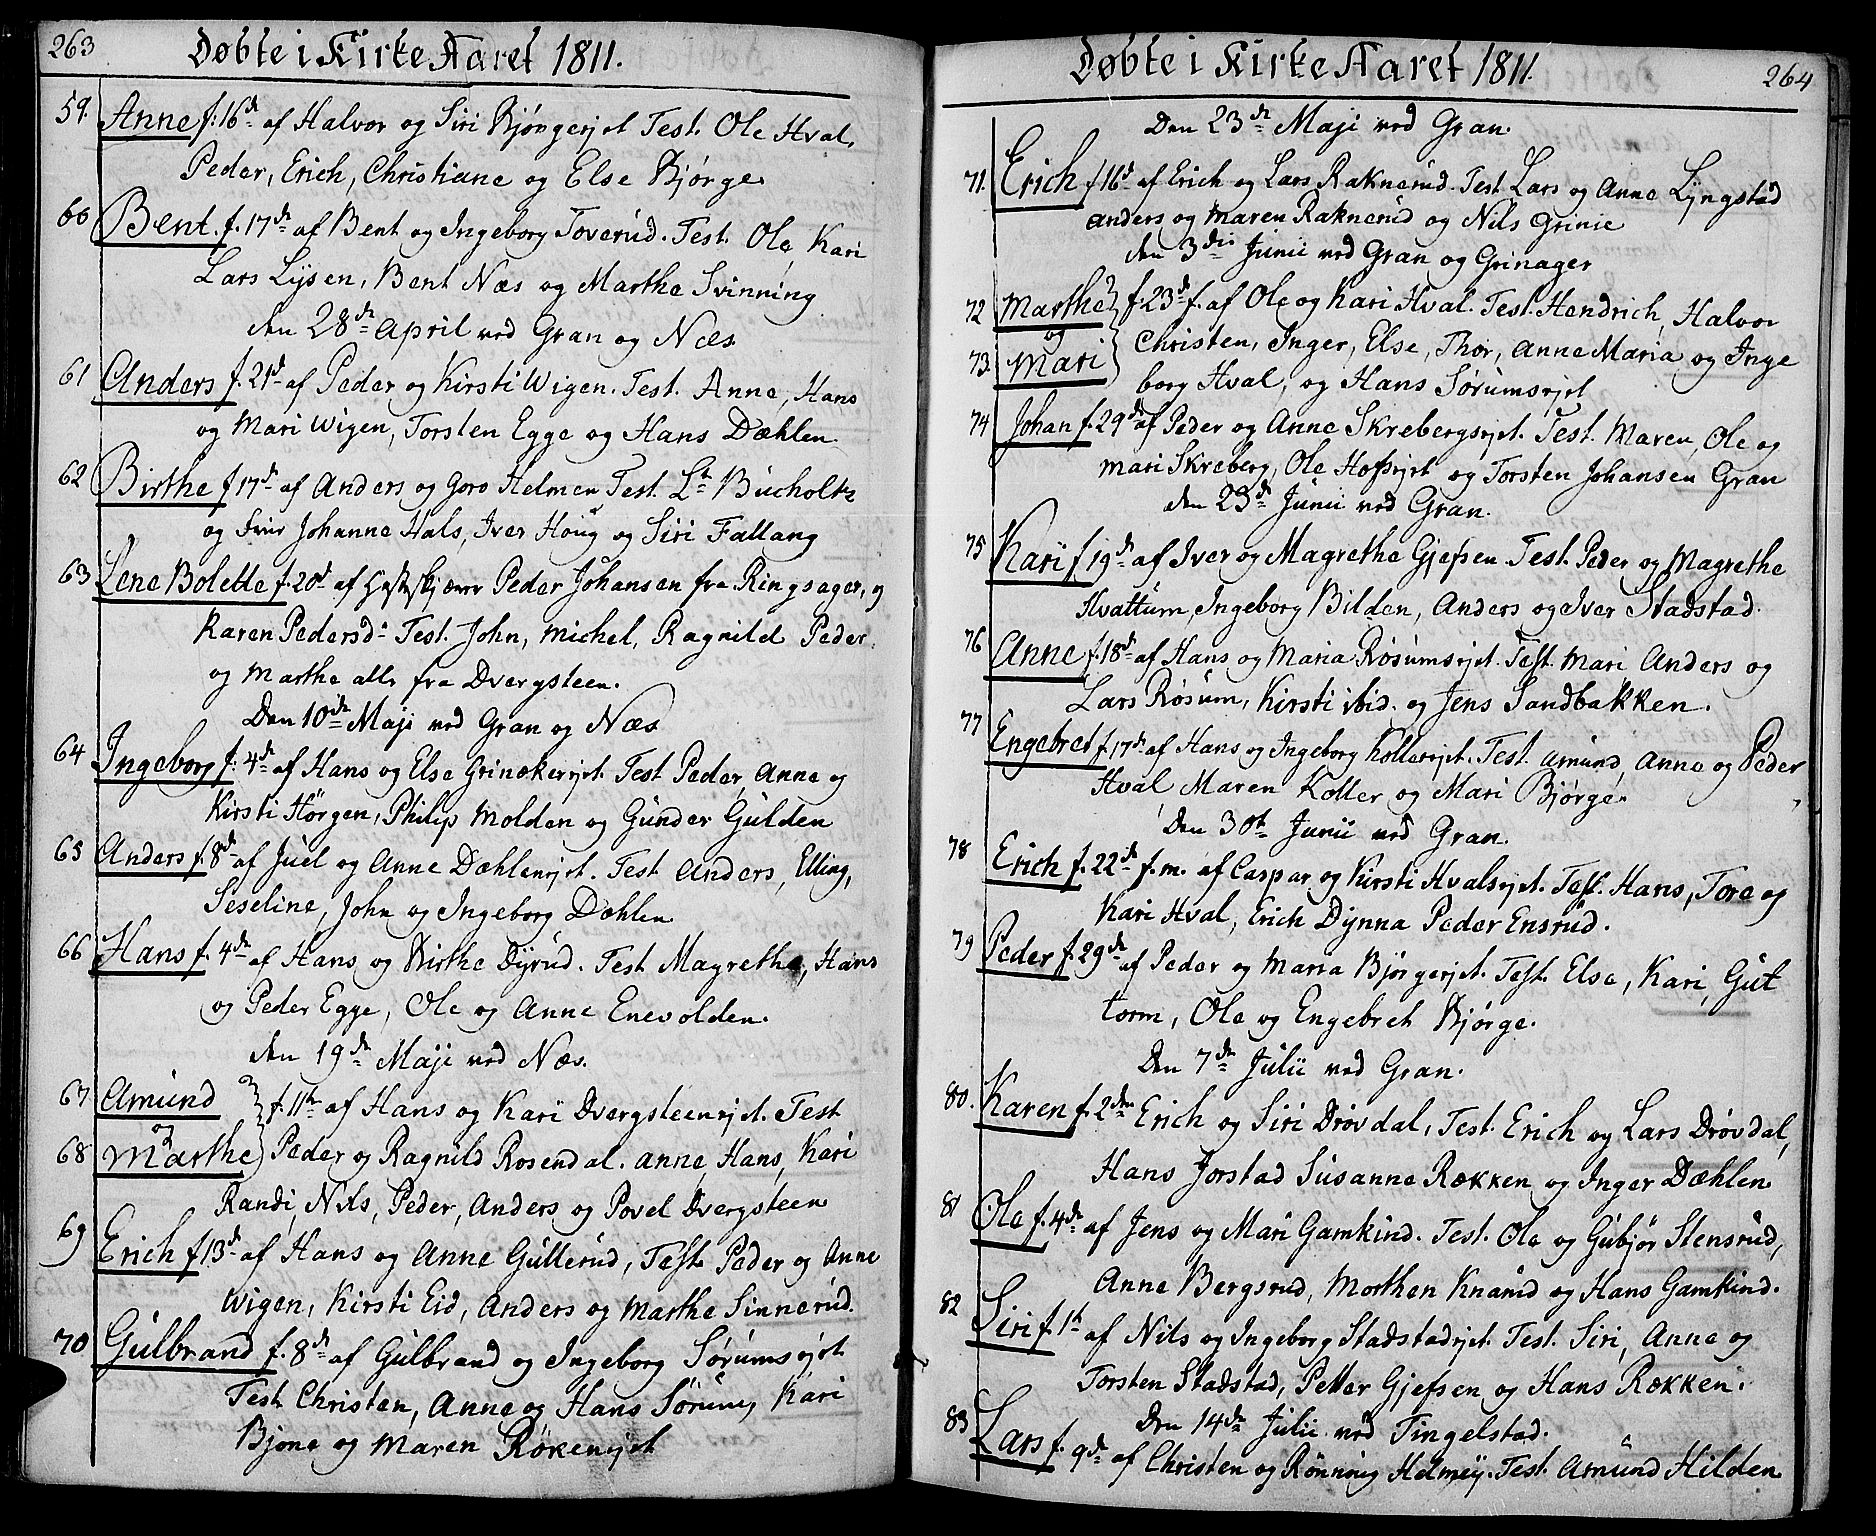 263
Døbte i Kirke Aaret 1811.
59. Anne f. 16de af Halvor og Siri Bjørgeejet Test. Ole Hval,
Peder, Erich, Christiane og Else Bjørge.
60 Bent. f. 17de af Bent og Ingeborg Toverud. Test. Ole, Kari
Lars Lysen, Bent Næs og Marthe Svinning
den 28de April ved Gran og Næs
61 Anders f. 21de af Peder og Kirsti Wigen. Test. Anne, Hans
og Mari Wigen, Torsten Egge og Hans Dæhlen
62 Birthe f 17de af Anders og Goro Helmen Test. Lt. Bucholtz
og Johanne Hals, Iver Houg og Siri Fallang
63 Lene Bolette f. 20d af Peder Johansen fra Ringsager, og
Karen Pedersd. Test. John, Michel, Ragnild Peder
og Marthe alle fra Dvergsteen.
Den 10de Maji ved Gran og Næs
64 Ingeborg f. 4de af Hans og Else Grinakerejet. Test Peder, Anne og
Kirsti Hørgen, Philip Molden og Gunder Gulden
65 Anders f. 8de af Juel og Anne Dæhlenejet. Test Anders, Elling,
Seseline, John og Ingeborg Dæhlen
66 Hans f. 4de af Hans og Birthe Dyrud. Test Magrethe, Hans
og Peder Egge, Ole og Anne Enevolden.
den 19de Maji ved Næs.
67 Amund } f. 11te af Hans og Kari Dvergsteenejet. Test
og
68 Marthe } Peder og Ragnild Rosendal. Anne, Hans, Kari
Randi, Nils, Peder, Anders og Povel Dvergsteen
69 Erich f 13de af Hans og Anne Gullerud, Test Peder og Anne
Wigen, Kirsti Eid, Anders og Marthe Sinnerud.
70 Gulbrand f. 8de af Gulbrand og Ingeborg Sørumsejet
Test Christen, Anne og Hans Sørum, Kari
Bjone og Maren Røkenejet
Døbte i Kirke Aaret 1811.
264
Den 23de Maji ved Gran.
71. Erich f 16d af Erich og Lars Raknerud. Test Lars og Anne Lyngstad
Anders og Maren Raknerud og Nils Grinie
den 3die Junii ved Gran og Grinager
72 Marthe } f. 23de f. af Ole og Kari Hval. Test. Hendrich, Halvor
og
73. Mari } Christen, Inger, Else, Thor, Anne Maria og Inge
borg Hval, og Hans Sørumsejet
74 Johan f. 29de af Peder og Anne Skrebergsejet. Test. Maren, Ole og
Mari Skreberg, Ole Hofsejet og Torsten Johansen Gran
den 23de Junii ved Gran.
75 Kari f 19de af Iver og Magrethe Gjefsen. Test. Peder og Magrethe
Hvattum, Ingeborg Bilden, Anders og Iver Stadstad.
76 Anne f. 18de af Hans og Maria Røsumsejet. Test. Mari, Anders og
Lars Røsum, Kirsti ibid. og Jens Sandbakken.
77 Engebret f. 17de af Hans og Ingeborg Kollerejet. Test. Amund, Anne og Peder
Hval, Maren Koller og Mari Bjørge.
Den 30te Junii ved Gran.
78 Erich f. 22de f. m. af Caspar og Kirsti Hvalsejet. Test. Hans, Tore og
Kari Hval, Erich Dynna Peder Ensrud.
79 Peder f. 29de af Peder og Maria Bjørgeejet. Test. Else, Kari, Gut
torm, Ole og Engebret Bjørge.
Den 7de Julii ved Gran.
80. Karen f. 2den Erich og Siri Drøvdal, Test. Erich og Lars Drøvdal,
Hans Jorstad Susanne Rækken og Inger Dæhlen
81 Ole f. 4de af Jens og Mari Gamkind. Test. Ole og Gubjør Stensrud,
Anne Bergsrud, Morthen Knarud og Hans Gamkind.
82 Siri f. 1te af Nils og Ingeborg Stadstadejet. Test. Siri, Anne og
Torsten Stadstad, Petter Gjefsen og Hans Rækken.
Den 14de Julii ved Tingelstad.
83 Lars f. 9de af Christen og Rønnøug Helmey. Test. Amund Hilden